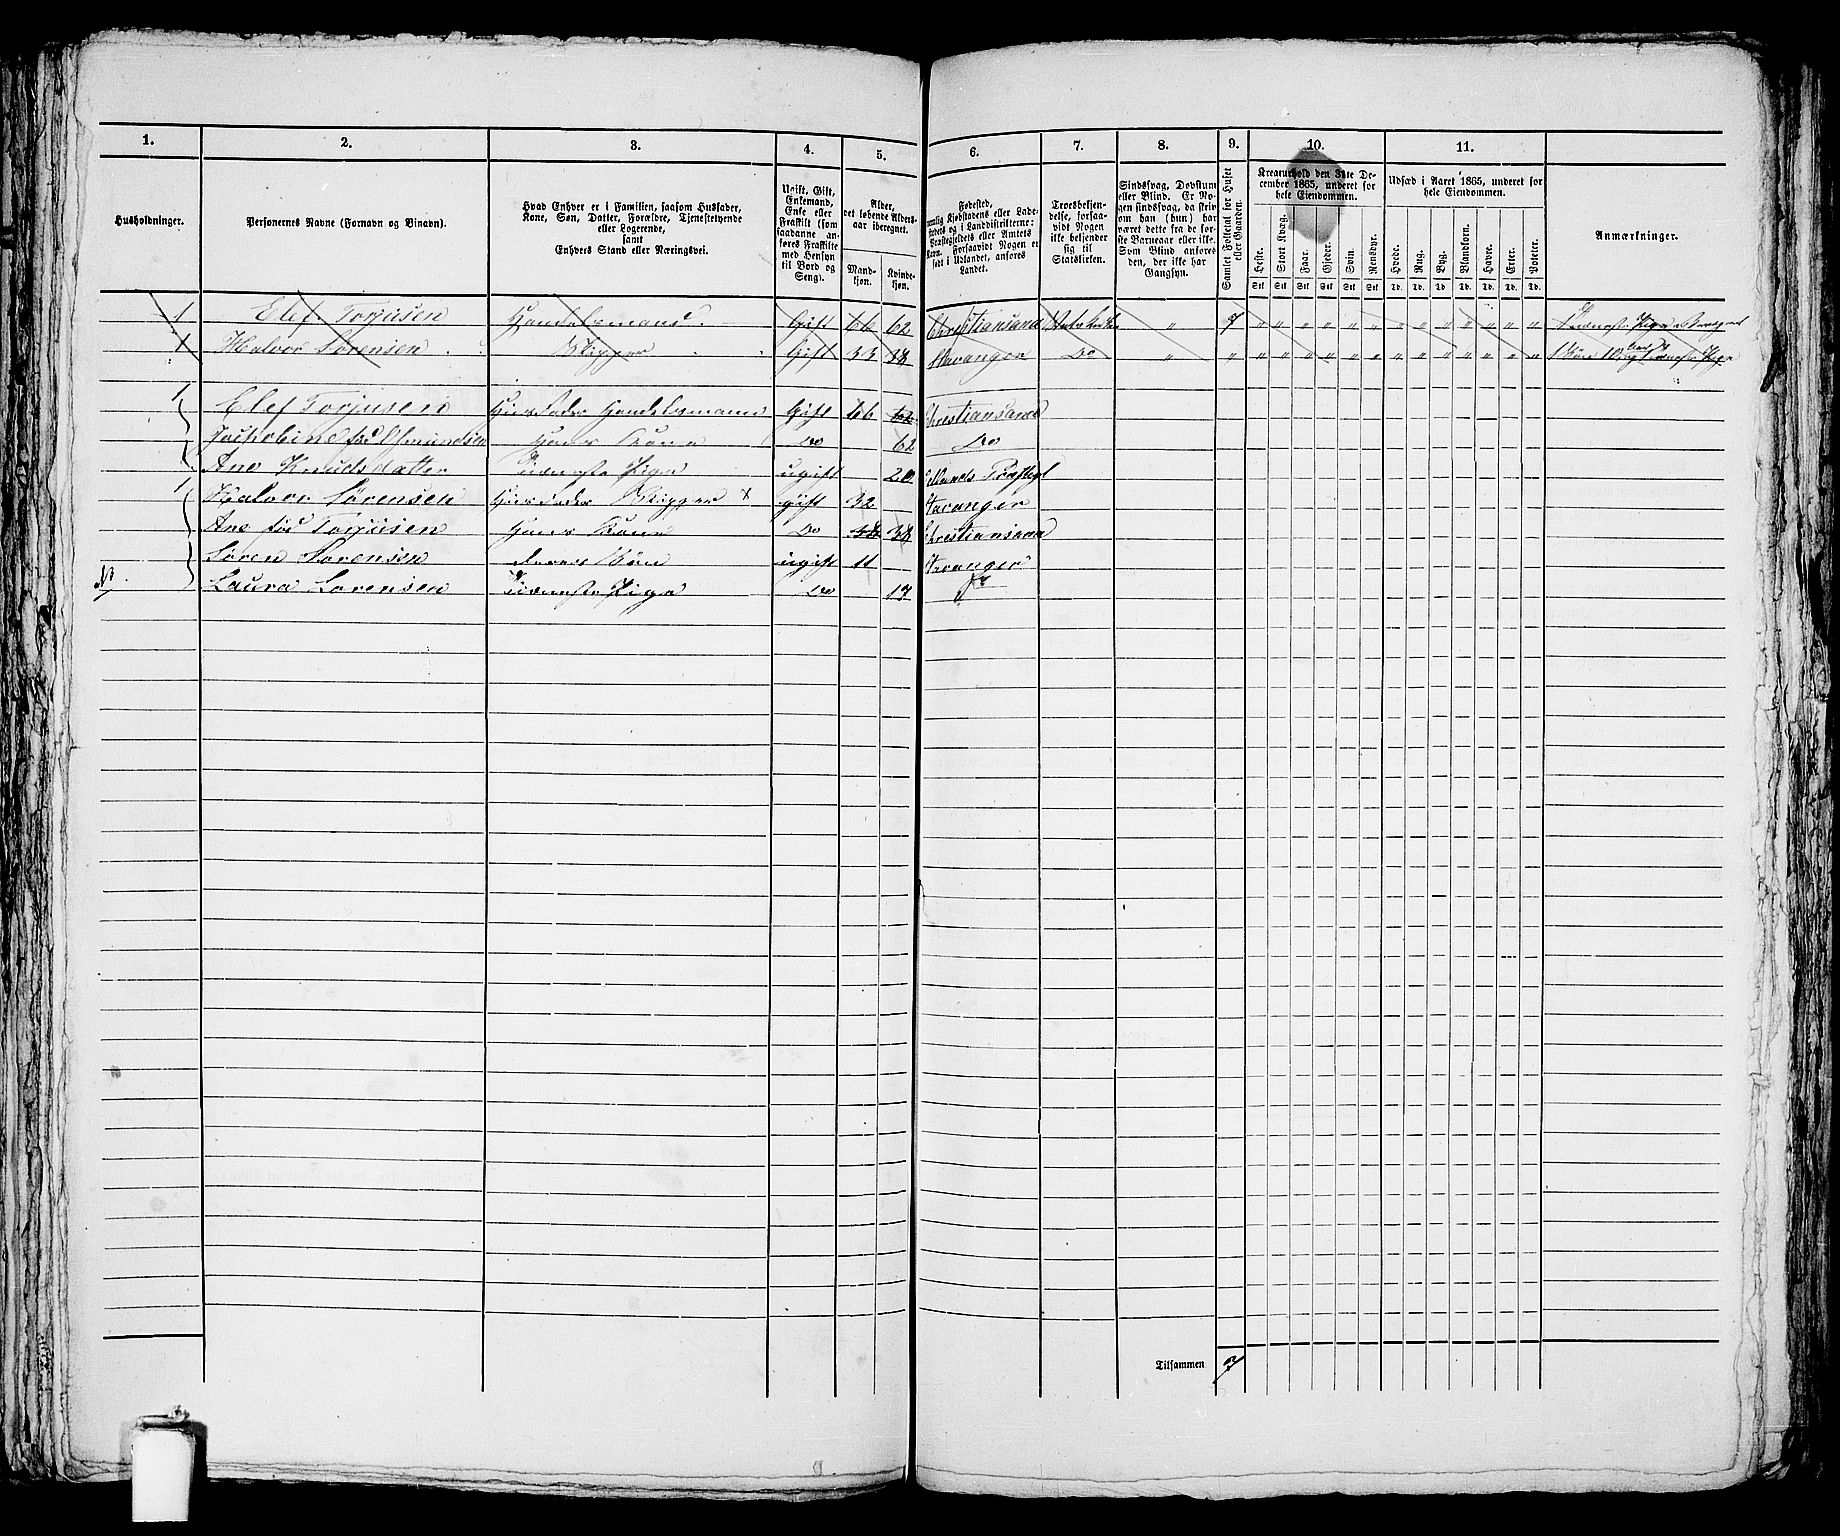 1. 2. 3. 4. 5. 6. 7. 8. 9. 10. 11.
Husholdninger.
Personernes Navne (Fornavn og Binavn).
Hvad Enhver er i Familien, saasom Husfader,
Kone, Søn, Datter, Forældre, Tjenestetyende
eller Logerende,
samt
Enhvers Stand eller Næringsvei.
Ugift, Gift,
Enkemand,
Enke eller
Fraskilt (som
saadanne an-
føres Fraskilte
med Hensyn
til Bord og
Seng).
Alder,
det løbende Alders-
aar iberegnet.
Mand-
kjøn.
Kvinde-
kjøn.
Fødested,
nemlig Kjøbstadens eller Lade-
stedets og i Landdistrikterne:
Præstegjeldets eller Amtets
Navn. Forsaavidt Nogen er
født i Udlandet, anføres
Landet.
Troesbekjen-
delse, forsaa-
vidt Nogen
ikke bekjender
sig til
Statskirken.
Sindssvag, Døvstum
eller Blind. Er No-
gen sindssvag, da skriv
om han (hun) har
været dette fra de før-
ste Barneaar eller ikke.
Som Blind ansføres
den, der ikke har
Gangsyn.
Samlet Folketal for Huset
eller Gaarden.
Kreaturhold den 31te De-
cember 1865, underet for
hele Eiendommen.
Heste. Stort Kvæg. Faar. Gjeder. Svin. Rensdyr.
Stk Stk Stk Stk Stk Stk
Udsæd i Aaret 1865, underet for
hele Eiendommen.
Hvede. Rug. Byg. Blandkorn. Havre. Erter. Poteter.
Td. Td. Td. Td. Td. Td. Td.
Anmærkninger.
1 Elef Torjusen Handelsmand Gift 66 62 Christiansand 7 " " " " " " " " " " " " "
1 Halvor Sørensen Skipper Gift 33 38 Stavanger Do " " " " " " " " " " " " " " "
1 Elef Torjusen Huusfader Handelsmann Gift 66 62 Christiansand
født Osmundsen Hans Kone Do 62 Do
Ane Knudsdatter Tieneste Pige ugift 20
1 Halvor Sørensen Huusfader Skipper gift 32 Stavanger
Ane fød Torjusen Hans Kone Do 38 38 Christiansand
Søren Sørensen deres Søn ugift 11 Stavanger
Laura Sørensen Tieneste Pige Do 17
Tilsammen 7